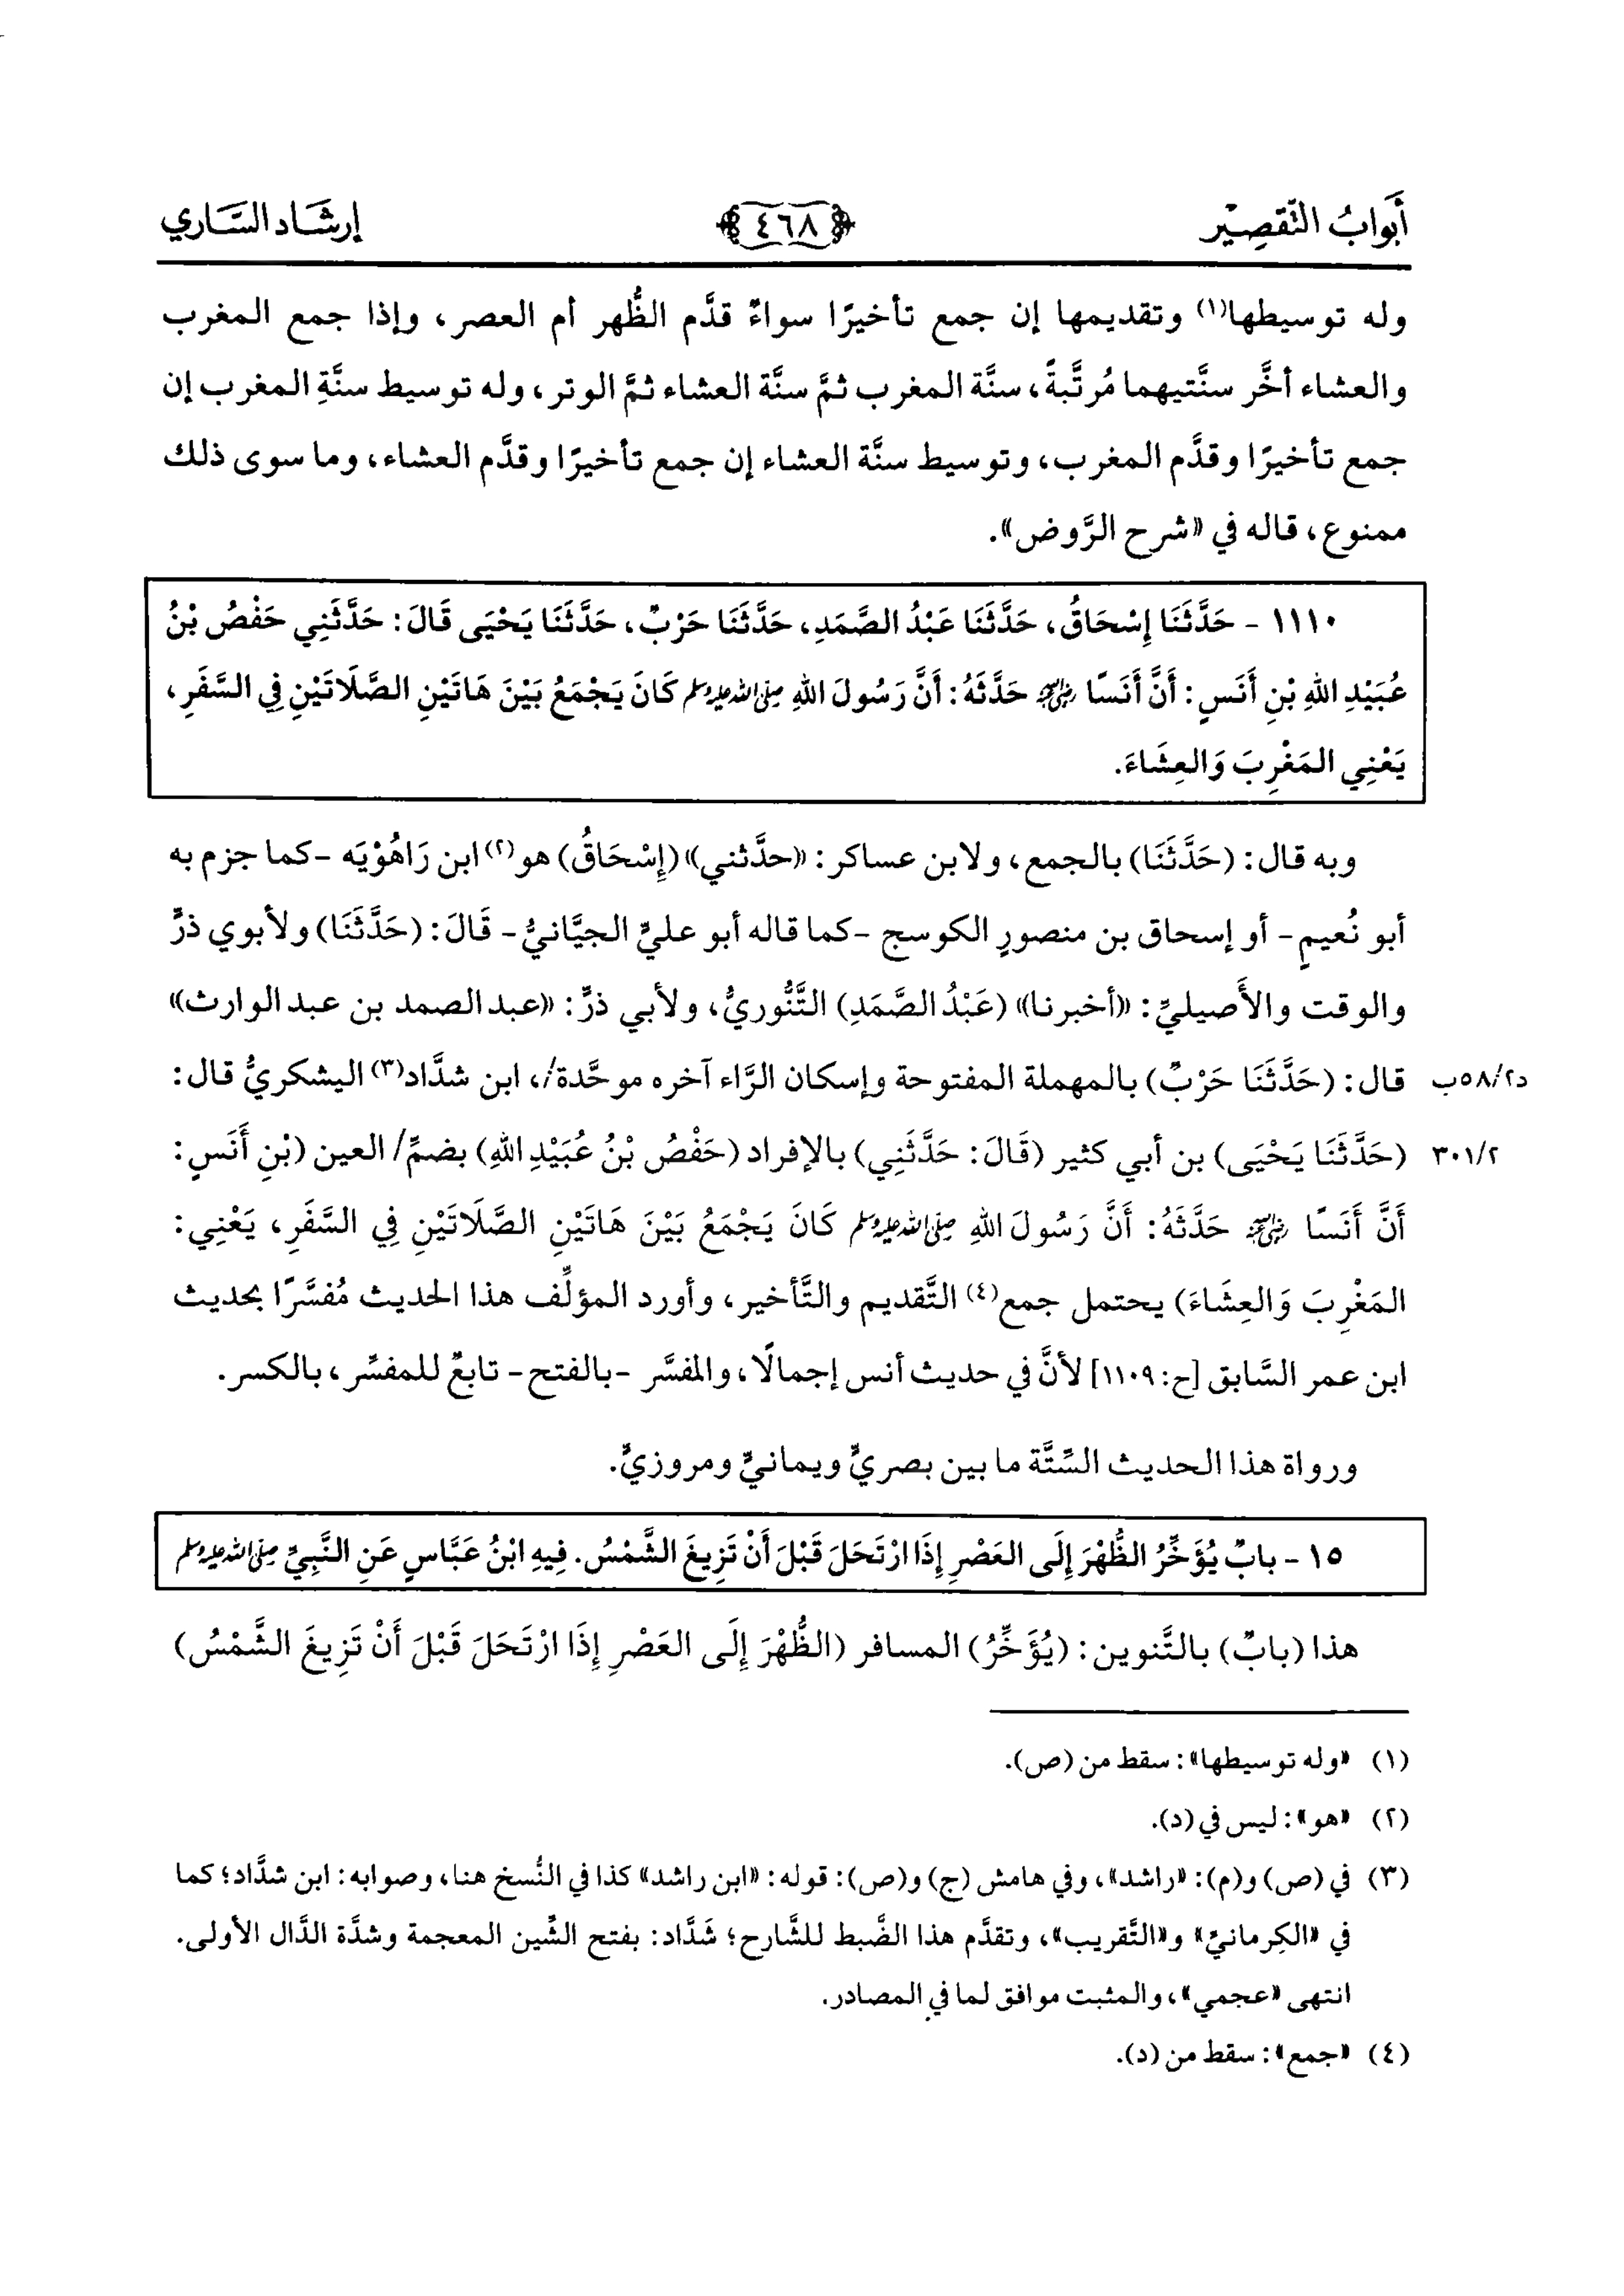 أَبوابُ التَّقصِيْر ٤٦٨ إرشَاد السَّاري
وله توسيطها(١) وتقديمها إن جمع تأخيرًا سواءٌ قدَّم الظُّهر أم العصر، وإذا جمع المغرب
والعشاء أخَّر سنَّتيهما مُرتَّبةً، سنَّة المغرب ثمَّ سنَّة العشاء ثمَّ الوتر، وله توسيط سنَّةِ المغرب إن
جمع تأخيرًا وقدَّم المغرب، وتوسيط سنَّة العشاء إن جمع تأخيرًا وقدَّم العشاء، وما سوى ذلك
ممنوع، قاله في «شرح الرَّوض».
١١١٠ - حَدَّثَنَا إِسْحَاقُ، حَدَّثَنَا عَبْدُ الصَّمَدِ، حَدَّثَنَا حَرْبٌ، حَدَّثَنَا يَحْيَى قَالَ: حَدَّثَنِي حَفْصُ بْنُ
عُبَيْدِ اللهِ بْنِ أَنَسٍ: أَنَّ أَنَسًا رَضِيَ اللهُ عَنْهُ حَدَّثَهُ: أَنَّ رَسُولَ اللهِ صلى الله عليه وسلم كَانَ يَجْمَعُ بَيْنَ هَاتَيْنِ الصَّلَاتَيْنِ فِي السَّفَرِ،
يَعْنِي المَغْرِبَ وَالعِشَاءَ.
وبه قال: (حَدَّثَنَا) بالجمع، ولابن عساكر: «حدَّثني» (إِسْحَاقُ) هو(٢) ابن رَاهُوْيَه -كما جزم به
أبو نُعيمٍ- أو إسحاق بن منصورٍ الكوسج -كما قاله أبو عليٍّ الجيَّانيُّ- قَالَ: (حَدَّثَنَا) ولأبوي ذرٍّ
والوقت والأَصيليِّ: «أخبرنا» (عَبْدُ الصَّمَدِ) التَّنُّوريُّ، ولأبي ذرٍّ: «عبد الصمد بن عبد الوارث»
قال: (حَدَّثَنَا حَرْبٌ) بالمهملة المفتوحة وإسكان الرَّاء آخره موحَّدة/، ابن شدَّاد(٣) اليشكريُّ قال: د٥٨/٢ب
(حَدَّثَنَا يَحْيَى) بن أبي كثير (قَالَ: حَدَّثَنِي) بالإفراد (حَفْصُ بْنُ عُبَيْدِ اللهِ) بضمِّ/ العين (بْنِ أَنَسٍ: ٣٠١/٢
أَنَّ أَنَسًا رَضِيَ اللهُ عَنْهُ حَدَّثَهُ: أَنَّ رَسُولَ اللهِ صلى الله عليه وسلم كَانَ يَجْمَعُ بَيْنَ هَاتَيْنِ الصَّلَاتَيْنِ فِي السَّفَرِ، يَعْنِي:
المَغْرِبَ وَالعِشَاءَ) يحتمل جمع(٤) التَّقديم والتَّأخير، وأورد المؤلِّف هذا الحديث مُفسَّرًا بحديث
ابن عمر السَّابق [ح: ١١٠٩] لأنَّ في حديث أنس إجمالًا، والمفسَّر -بالفتح- تابعٌ للمفسِّر، بالكسر.
ورواة هذا الحديث السِّتَّة ما بين بصريٍّ ويمانيٍّ ومروزيٍّ.
١٥ - بابٌ يُؤَخِّرُ الظُّهْرَ إِلَى العَصْرِ إِذَا ارْتَحَلَ قَبْلَ أَنْ تَزِيغَ الشَّمْسُ. فِيهِ ابْنُ عَبَّاسٍ عَنِ النَّبِيِّ صلى الله عليه وسلم
هذا (بابٌ) بالتَّنوين: (يُؤَخِّرُ) المسافر (الظُّهْرَ إِلَى العَصْرِ إِذَا ارْتَحَلَ قَبْلَ أَنْ تَزِيغَ الشَّمْسُ)
(١) «وله توسيطها»: سقط من (ص).
(٢) «هو»: ليس في (د).
(٣) في (ص) و(م): «راشد»، وفي هامش (ج) و(ص): قوله: «ابن راشد» كذا في النُّسخ هنا، وصوابه: ابن شدَّاد؛ كما
في «الكِرمانيّ» و«التَّقريب»، وتقدَّم هذا الضَّبط للشَّارح؛ شَدَّاد: بفتح الشِّين المعجمة وشدَّة الدَّال الأولى.
انتهى «عجمي»، والمثبت موافق لما في المصادر.
(٤) «جمع»: سقط من (د).